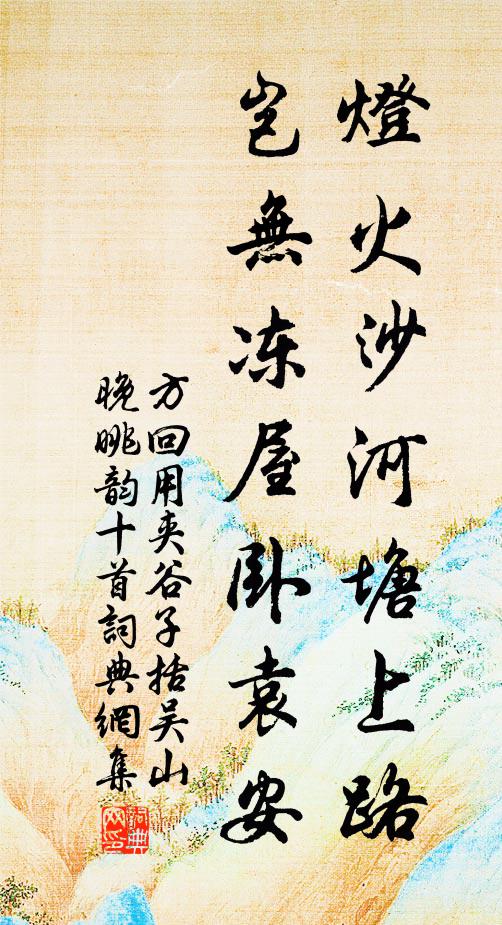 燈火沙河塘上路
豈無冻屋卧袁安
方回用夹谷子括吴山
晚眺韵十首詞典網集
詞典
网印